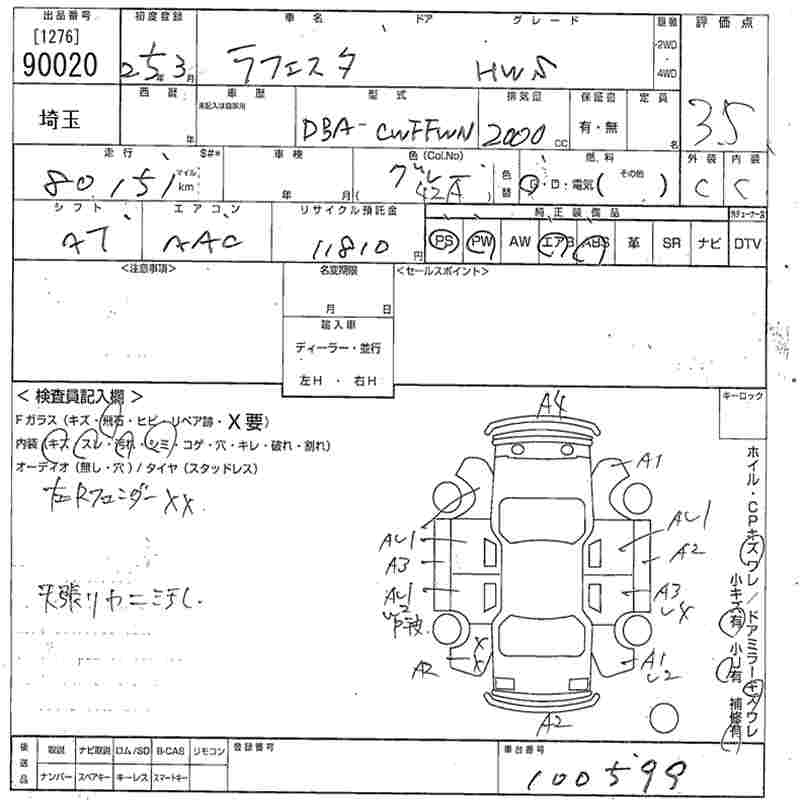 出品番号 初度登録 車名 ドア グレード 駆動 評価点
[1276] 90020 25年3月 ラフェスタ HWS 2WD・4WD 3.5
西暦 車歴 型式 排気量 保証書 定員
埼玉 年 未記入は自家用 DBA-CWFFWN 2000cc 有・無 名
走行 S#* 車検 色(Col.No) 燃料 外装 内装
80,151 マイル km 年 月 グレー 42A 色替 G・D・電気 (その他) C C
シフト エアコン リサイクル預託金 純正装備品
AT AAC 11810円 PS PW AW エアB ABS 革 SR ナビ DTV
<注意事項> 名変期限 <セールスポイント>
月 日
輸入車
ディーラー・並行
左H・右H
<検査員記入欄> キーロック
Fガラス(キズ・飛石・ヒビ・リペア跡・X要)
内装(キズ・スレ・汚れ・シミ・コゲ・穴・キレ・破れ・割れ)
オーディオ(無し・穴)/タイヤ(スタッドレス)
左Rフェンダー XX
天張りヤニ汚し
A4
A1
AU1 AU1
A3 A2
AU1 A3
U2 U4
XX
A2 A1
U2
A2
ホイル・CPキズワレ/ドアミラーキズワレ
小キズ有 小U有 補修有
後送品 取説 ナビ取説 ロム/SD B-CAS リモコン 登録番号 車台番号
ナンバー スペアキー キーレス スマートキー 100599